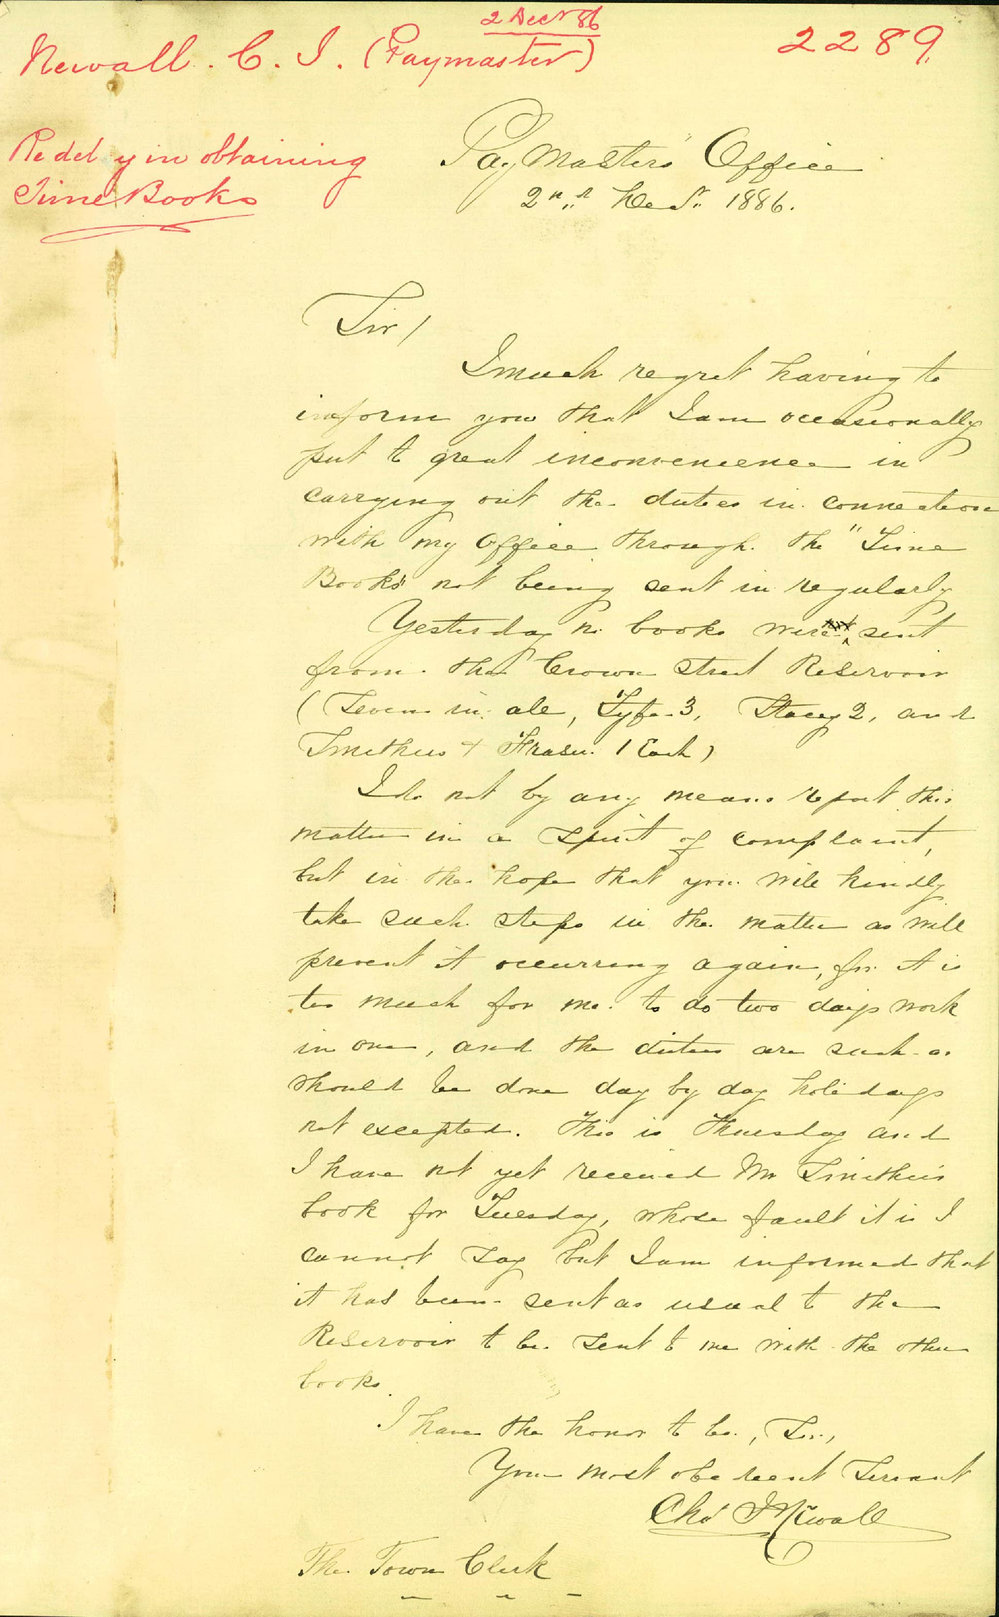 2 Decr 86
Newall. C. J. (Paymaster)
2289
Re delay in obtaining
Time Books
Pay Masters Office
2nd Decr. 1886.
Sir/
I much regret having to
inform you that I am occasionally
put to great inconvenience in
carrying out the duties in connection
with my Office through the "Time
Books" not being sent in regularly
Yesterday no books were sent
from the Crown Street Reservoir
(Seven in all, Fyfe 3, Stacey 2, and
Smithers & Fraser 1 Each)
I do not by any means report this
matter in a spirit of complaint,
but in the hope that you will kindly
take such steps in the matter as will
prevent it occurring again, for it is
too much for me to do two days work
in one, and the duties are such as
should be done day by day holidays
not excepted. This is Thursday and
I have not yet received Mr Smithers
book for Tuesday, whose fault it is I
cannot say but I am informed that
it has been sent as usual to the
Reservoir to be sent to me with the other
books.
I have the honor to be, Sir,
Your most obedient Servant
Chs J Newall
The Town Clerk